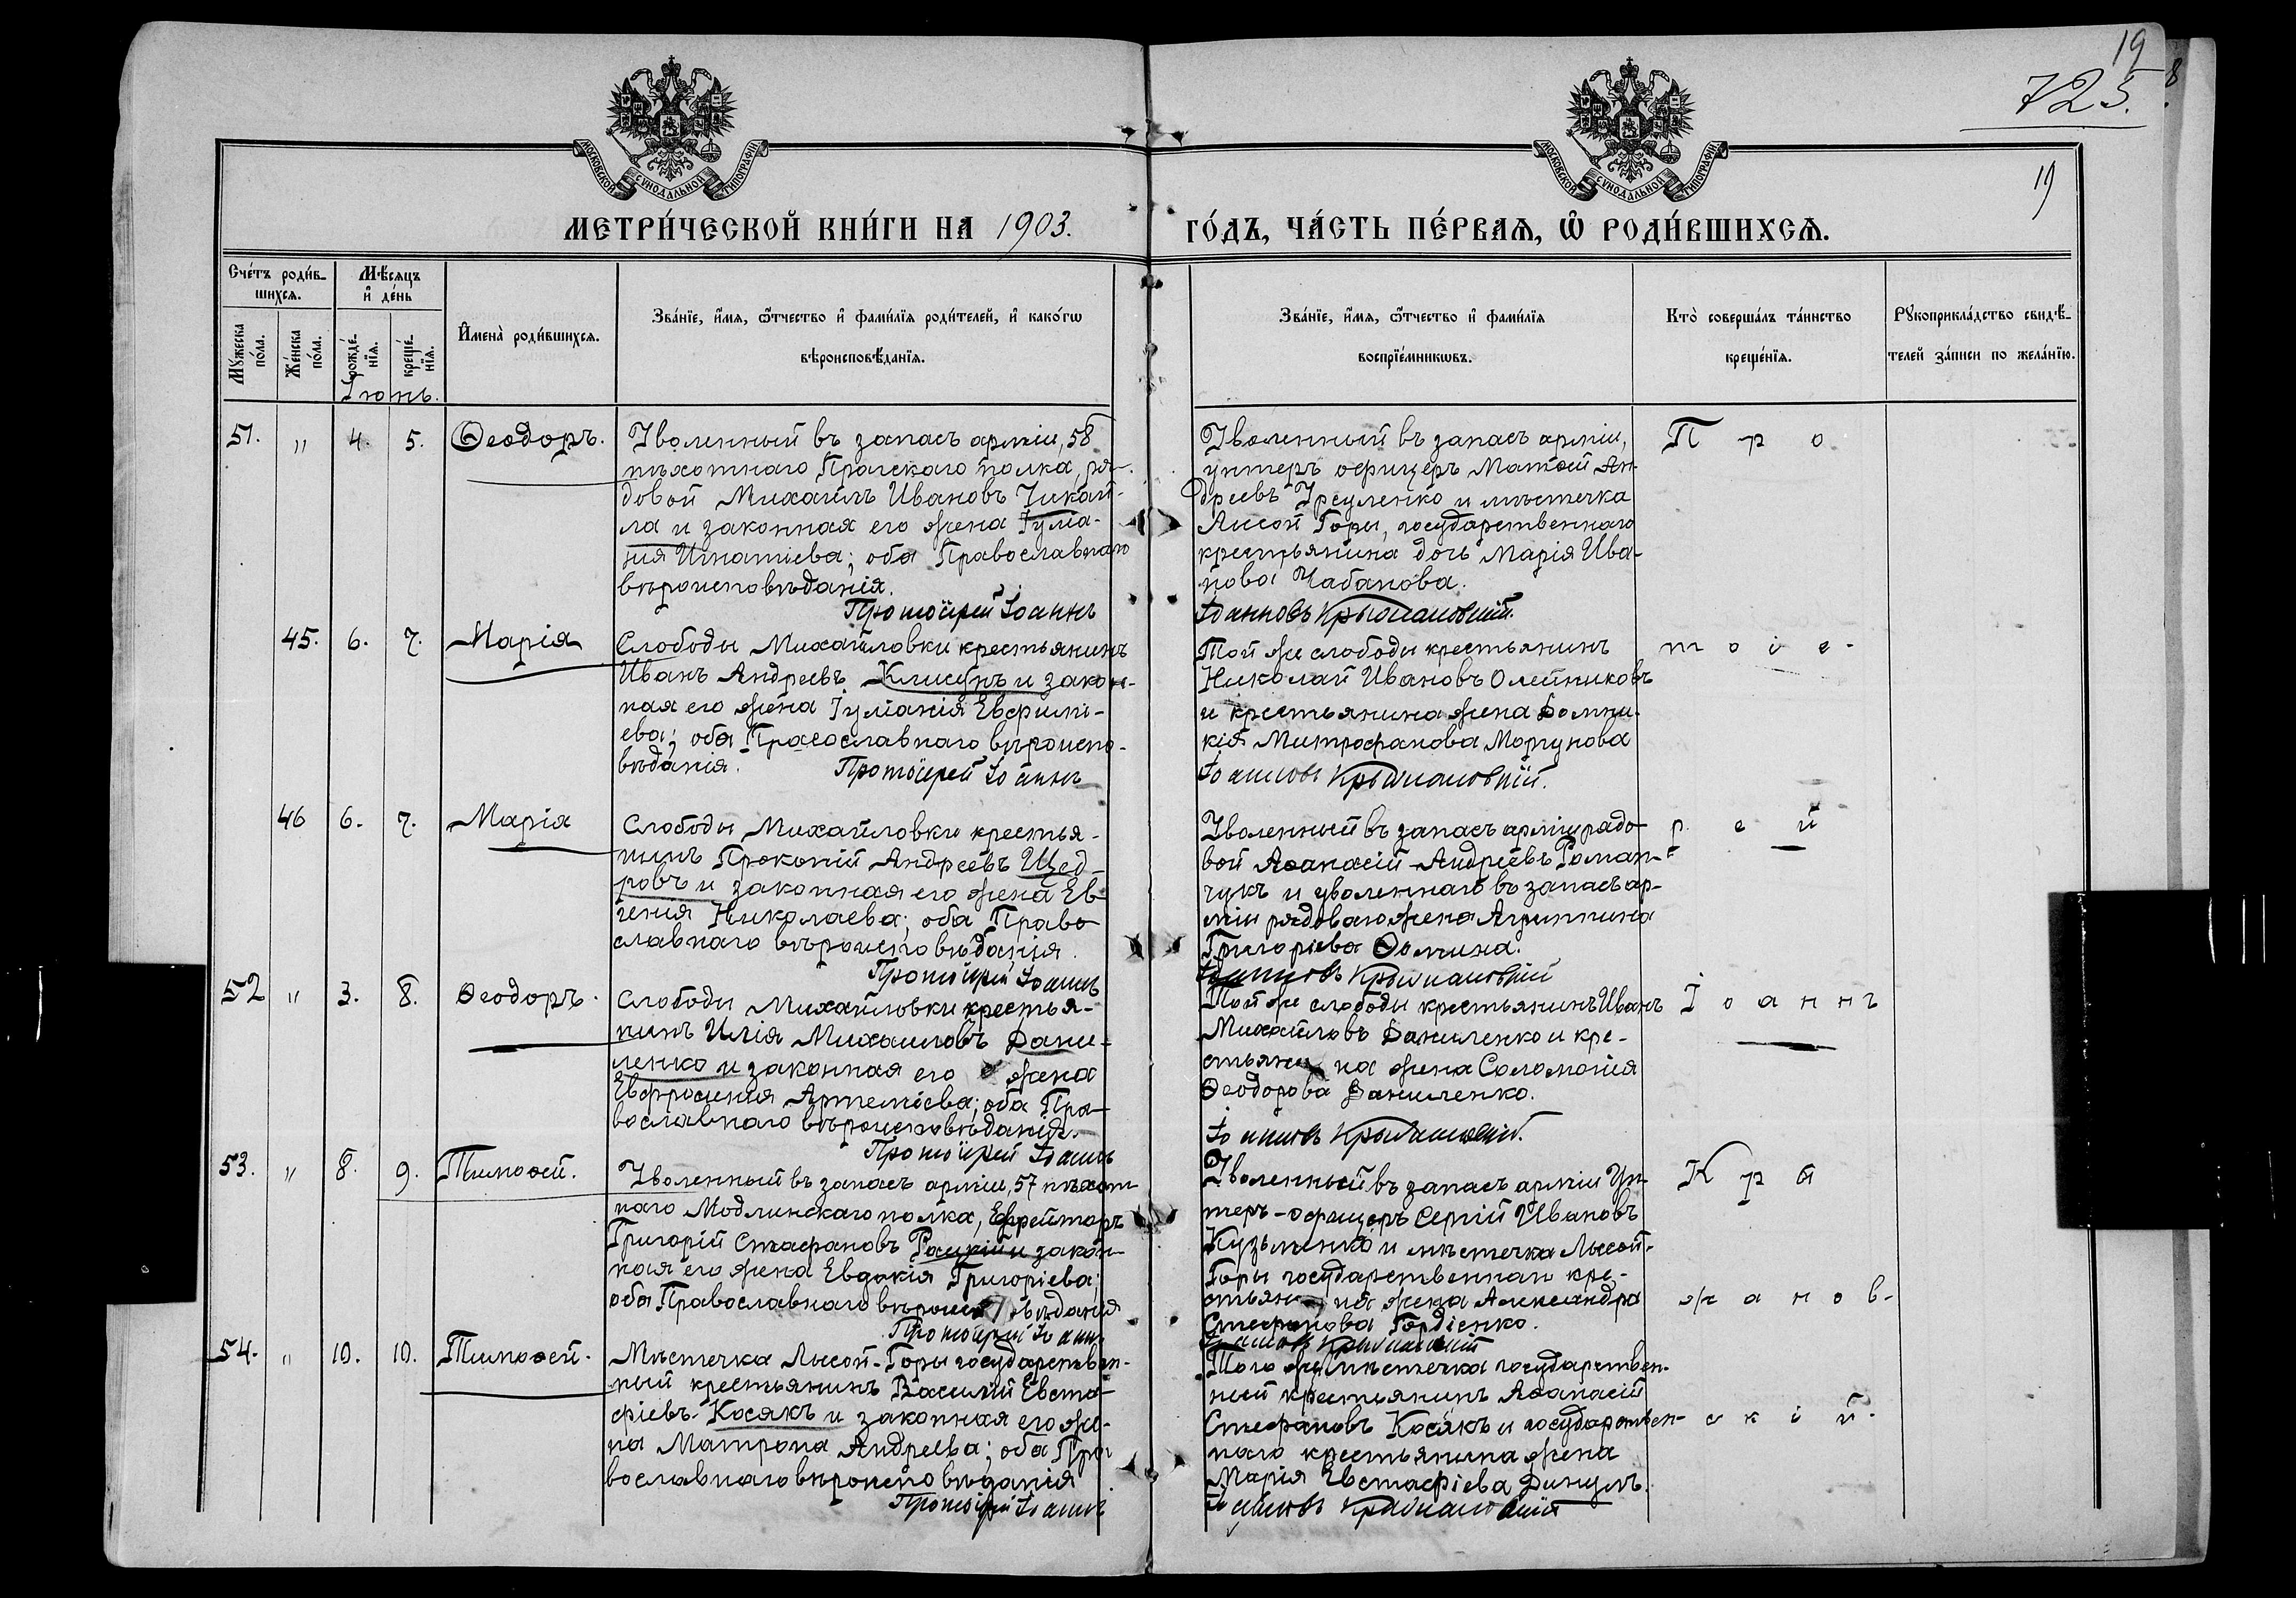 19
8
725.
19
МОСКОВСКОЙ СУНОДАЛЬНОЙ ТИПОГРАФІИ
МОСКОВСКОЙ СУНОДАЛЬНОЙ ТИПОГРАФІИ
МЕТРИ́ЧЕСКОЙ КНИ́ГИ НА 1903.
ГО́ДЪ, ЧА́СТЬ ПЕ́РВАѦ, Ѡ РОДИ́ВШИХСѦ.
Сче́тъ роди́в-
шихсѧ.
Мѣ́сѧцъ
и де́нь
Мꙋ́жеска по́ла.
Же́нска по́ла.
рожде́-нїѧ.
креще́-нїѧ.
Имена̀ роди́вшихсѧ.
Зва́нїе, и́мѧ, ѻ́тчество и фами́лїѧ роди́телей, и како́гѡ
вѣроисповѣ́данїѧ.
Зва́нїе, и́мѧ, ѻ́тчество и фами́лїѧ
воспрїе́мникѡвъ.
Кто̀ соверша́лъ та́инство
креще́нїѧ.
Рꙋкоприкла́дство свидѣ́-
телей за́писи по жела́нїю.
Іюнь.
51. " 4. 5. Ѳеодоръ.
Уволенный въ запасъ арміи, 58
пѣхотнаго Прагскаго полка, ря-
довой Михаилъ Ивановъ Чикай-
ла и законная его жена Іулiа-
нія Игнатіева; оба Православнаго
вѣроисповѣданія.
Протоіерей Іоаннъ
Уволенный въ запасъ арміи,
унтеръ офицеръ Матѳей Ан-
дреевъ Урсуленко и мѣстечка
Лисой Горы, государственнаго
крестьянина дочь Марія Ива-
нова Чабанова.
Іоанновъ Крыжановскій.
П р о
45. 6. 7. Марія
Слободы Михайловки крестьянинъ
Иванъ Андреевъ Клисунъ и закон-
ная его жена Іуліанія Евфимі-
ева; оба Православнаго вѣроиспо-
вѣданія.
Протоіерей Іоаннъ
Той же слободы крестьянинъ
Николай Ивановъ Олейниковъ
и крестьянина жена Домни-
кія Митрофанова Моргунова
Іоанновъ Крыжановскій.
т о і е -
46 6. 7. Марія
Слободы Михайловки крестья-
нинъ Прокопій Андреевъ Щед-
ровъ и законная его жена Ев-
генія Николаева; оба Право-
славнаго вѣроисповѣданія.
Протоіерей Іоаннъ
Уволенный въ запасъ арміи рядо-
вой Аѳанасій Андреевъ Роман-
чукъ и уволеннаго въ запасъ ар-
міи рядоваго жена Агриппина
Григоріева Ѳомина.
Іоанновъ Крыжановскій
р е й
52 " 3. 8. Ѳеодоръ.
Слободы Михайловки крестья-
нинъ Илія Михаиловъ Дани-
ленко и законная его жена
Евфросинія Артеміева; оба Пра-
вославнаго вѣроисповѣданія.
Протоіерей Іоаннъ
Той же слободы крестьянинъ Иванъ
Михайловъ Даниленко и кре-
стьянина жена Соломонія
Ѳеодорова Даниленко.
Іоанновъ Крыжановскій.
І о а н н ъ
53. " 8. 9. Тимоѳей.
Уволенный въ запасъ арміи, 57 пѣхот-
наго Модлинскаго полка, Ефрейторъ
Григорій Стефановъ Рацкій и закон-
ная его жена Евдокія Григоріева;
оба Православнаго вѣроисповѣданія
Протоіерей Іоаннъ
Уволенный въ запасъ арміи Ун-
теръ-офицеръ Сергій Ивановъ
Кузьменко и мѣстечка Лысой-
Горы государственнаго кре-
стьянина жена Александра
Стефанова Гордіенко.
Іоанновъ Крыжановскій
К р ы
ж а н о в-
54. " 10. 10. Тимоѳей.
Мѣстечка Лысой-Горы государствен-
ный крестьянинъ Василій Евста-
фіевъ Косякъ и законная его же-
на Матрона Андреева; оба Пра-
вославнаго вѣроисповѣданія
Протоіерей Іоаннъ
Того же мѣстечка государствен-
ный крестьянинъ Аѳанасій
Стефановъ Косякъ и государствен-
наго крестьянина жена
Марія Евстафіева
Іоанновъ Крыжановскій
с к і й.